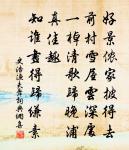 好景儂家披得去
前村雪屋雲深處
一棹清歌歸晚浦
真佳趣
知誰畫得歸縑素
史浩漁父舞